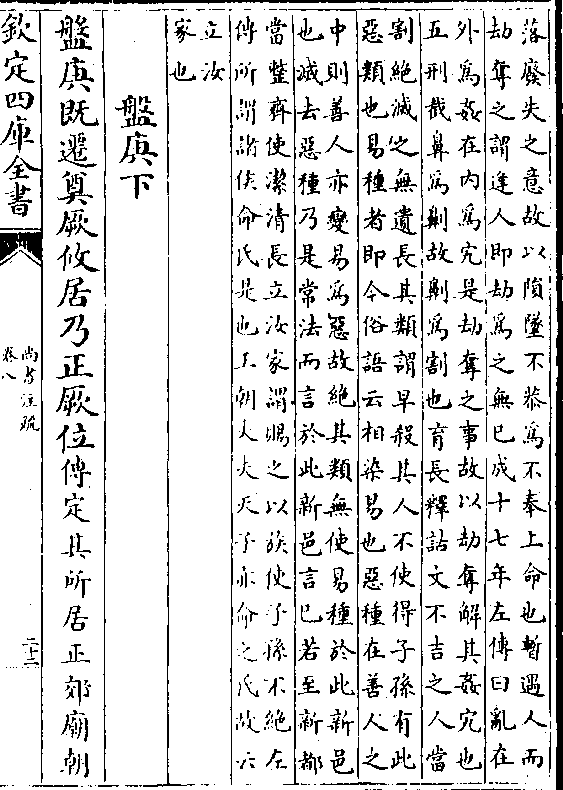 落廢失之意故以隕墜不恭爲不奉上命也暫遇人而
劫奪之謂逢人即劫爲之無已成十七年左傳曰亂在
外爲姦在内爲宄是劫奪之事故以劫奪解其姦宄也
五刑截鼻爲劓故劓爲割也育長釋詁文不吉之人當
割絶滅之無遺長其類謂早殺其人不使得子孫有此
惡類也易種者即今俗語云相染易也惡種在善人之
中則善人亦變易爲惡故絶其類無使易種於此新邑
也滅去惡種乃是常法而言於此新邑言已若至新都
當整齊使潔清長立汝家謂賜之以族使子孫不絶左
傳所謂諸侯命氏是也王朝大夫天子亦命之氏故云
立汝
家也
盤庚下
盤庚既遷奠厥攸居乃正厥位傳定其所居正郊廟朝
欽定四庫全書
尚書注疏
卷八
二十二